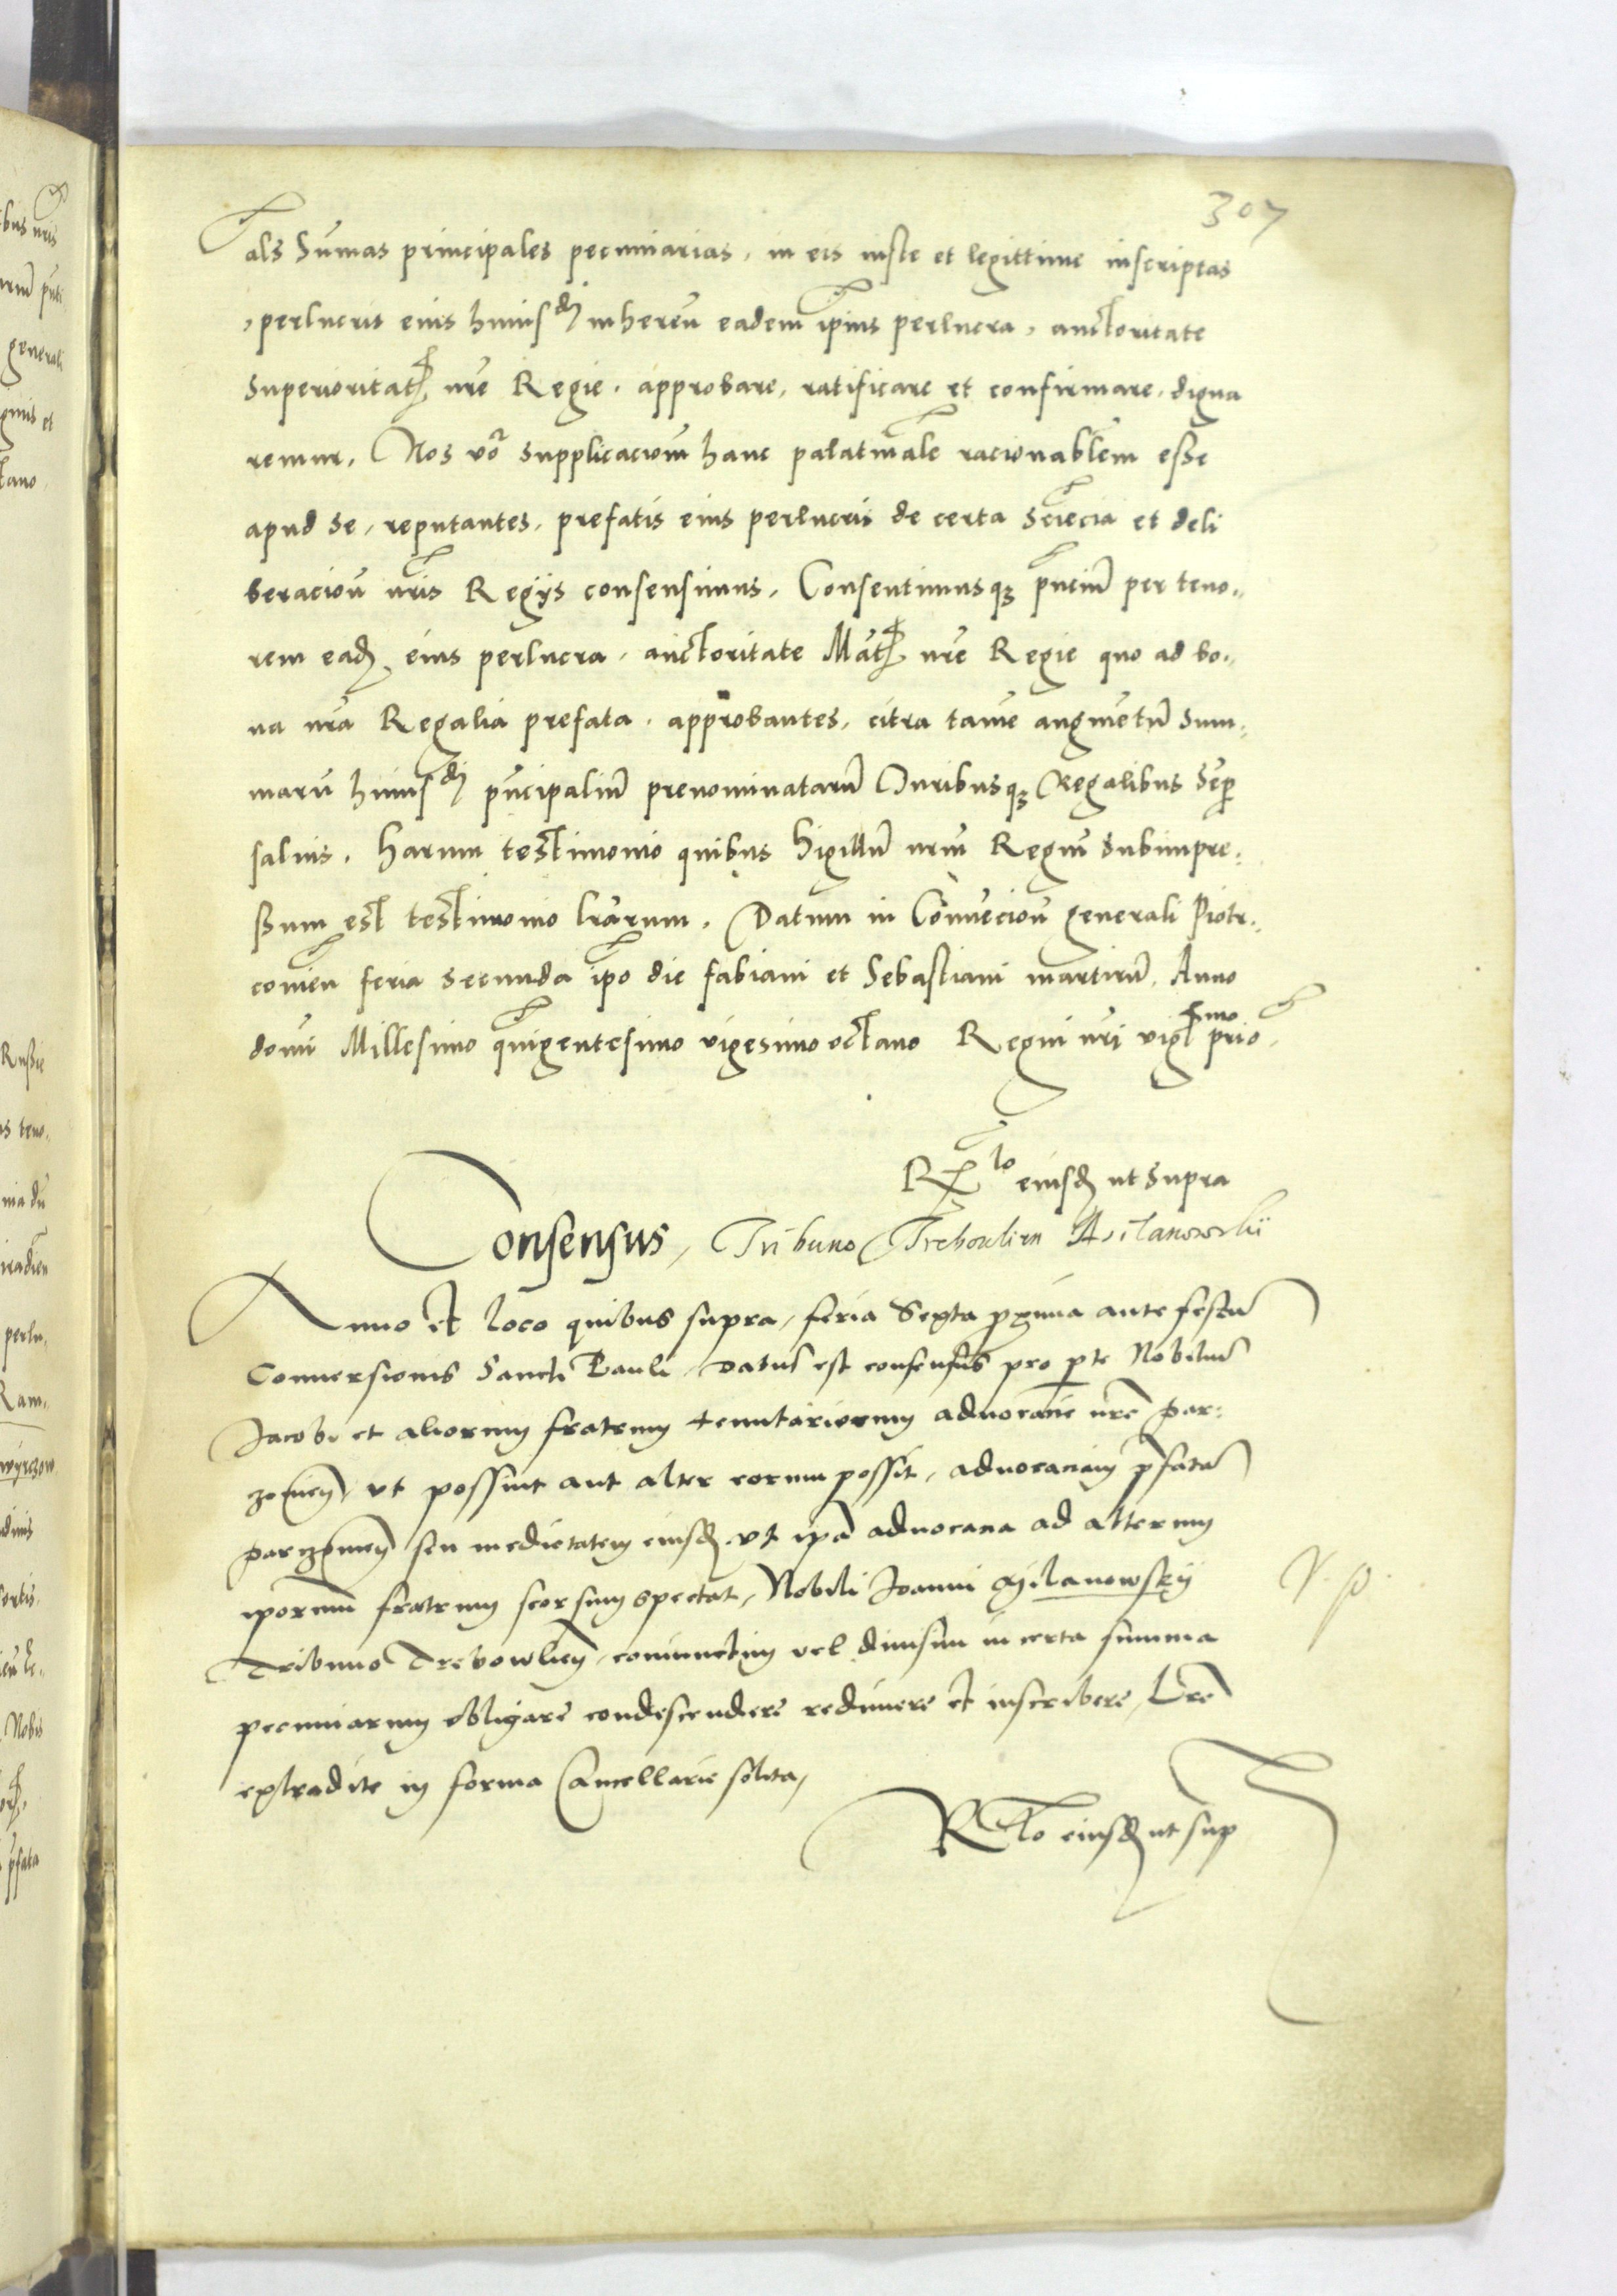 307
als Sūmas principales pecuniarias, in eis iuste et legittime inscriptas
, perlucris eius huiusdi inhereñ eadem ipius perlucra, auctoritate
Superioritatis nre Regie. approbare, ratificare et confirmare. digna
remur. Nos vo supplicacioem hanc palatinale racionablem esse
apud se, reputantes, prefatis eius perlucris de certa sciecia et deli
beracioñ nris Regijs consensimus. Consentimusq pncium per teno..
rem ead eius perlucra, auctoritate Mtatis nre Regie quo ad bo..
na nra Regalia prefata. approbantes, citra tame augmetū sum..
marū huiusdi pncipaliū prenominatarū Iuribusq Regalibus sep
saluis. Harum testimonio quibus Sigillū nrm Regiū subimpre..
ssum est testimonio lrarum. Datum in Convecioñ generali Piotr..
covieñ feria secunda ipo die fabiani et Sebastiani martirū. Anno
domi Millesimo quigentesimo vigesimo octavo Regni nri viglmo prio.
Rlo eiusd ut supra
Consensus, Tribuno Trebovlien Milanowskij
Anno et loco quibus supra, feria Sexta proxima ante festū
Conversionis Sancti Pauli, datus est consensus pro pte Nobiliū
Jacobi et aliorum fratrum tenutariorum advocacie nre par..
zovien, ut possint aut alter eorum possit, advocaciam pfatā
parczovien seu medietatem eiusd. ut ipa advocacia ad alterum
iporum fratrum seorsum spectat, Nobili Joanni Milanowskij
Tribuno Trebowlien, coniunctim vel divisim in certa summa
pecuniarum obligare condescendere redimere et inscribere, Lre
extradite in forma Cancellarie solita,
Rlo eiusd ut sup